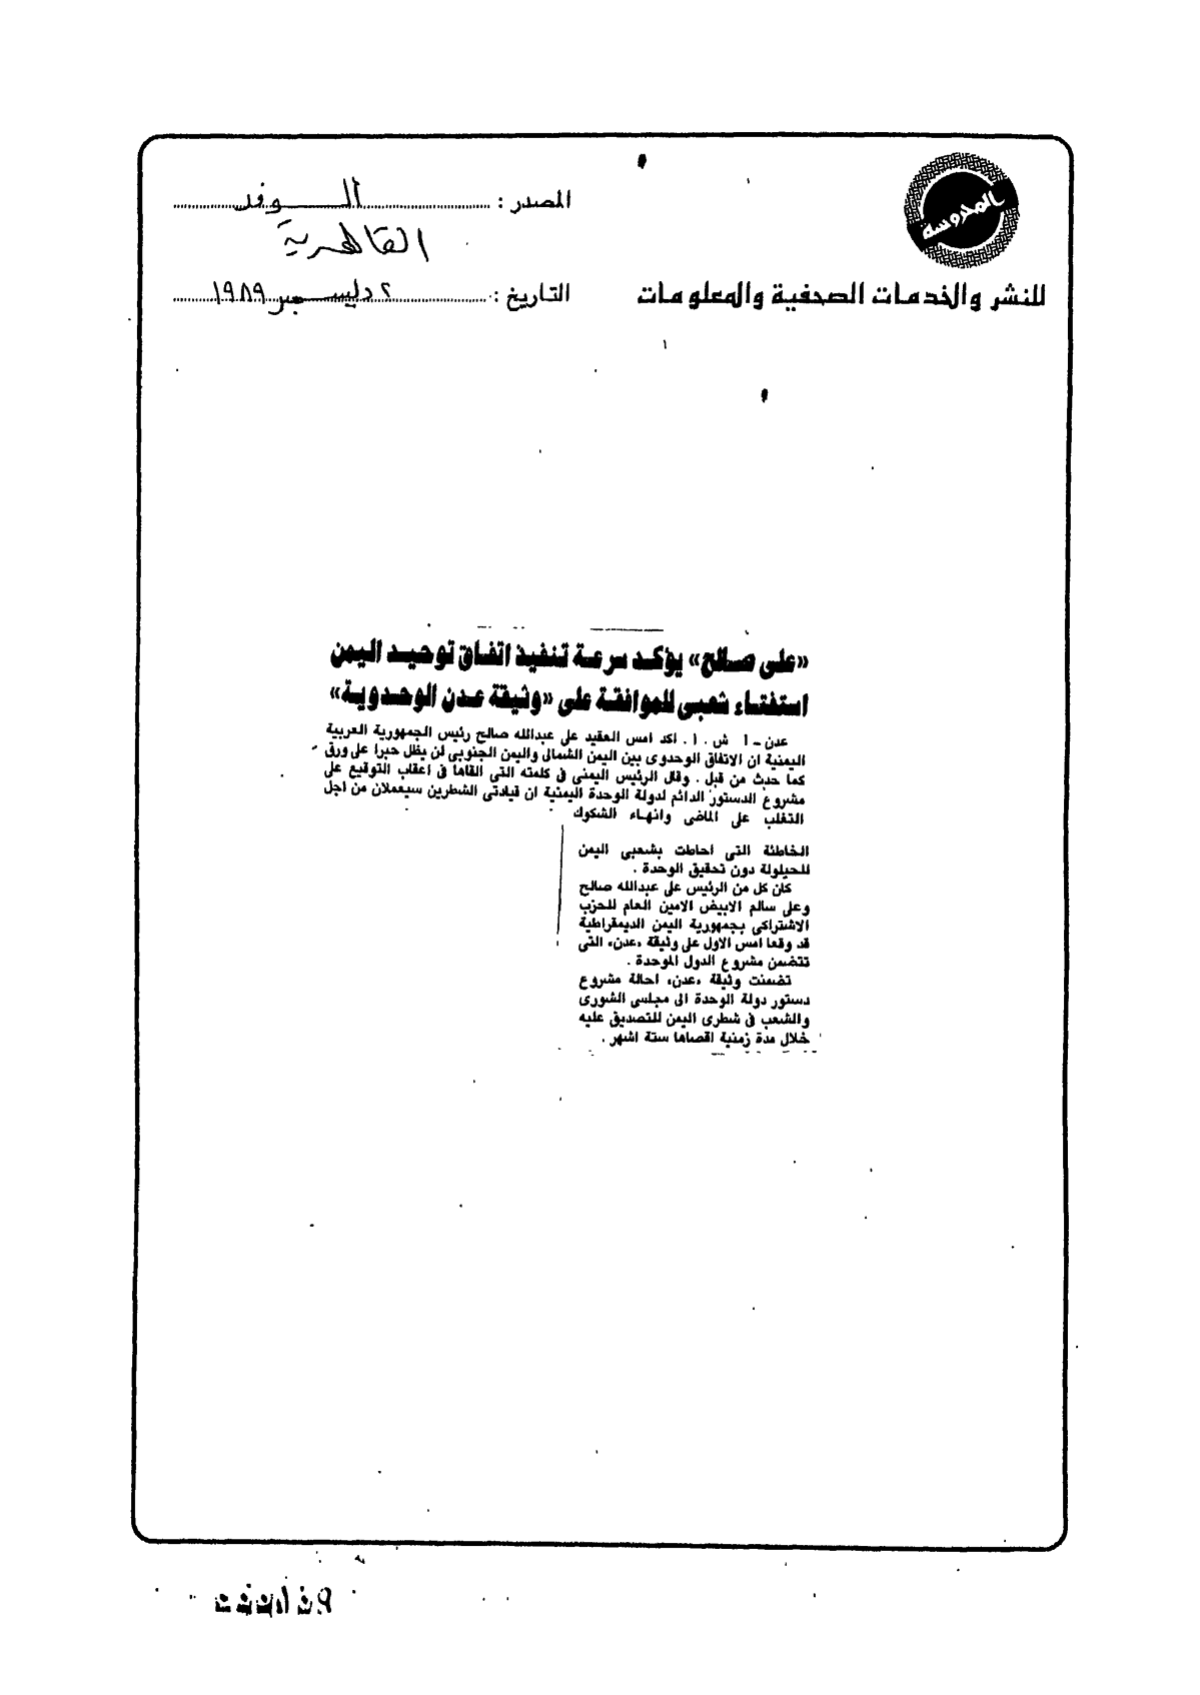 المحروسة
للنشر والخدمات الصحفية والمعلومات
المصدر : الوفد
القاهرية
التاريخ : ٢ ديسمبر ١٩٨٩
«على صالح» يؤكد سرعة تنفيذ اتفاق توحيد اليمن
استفتاء شعبى للموافقة على «وثيقة عدن الوحدوية»
عدن - ا ش . ا . اكد امس العقيد على عبدالله صالح رئيس الجمهورية العربية
اليمنية ان الاتفاق الوحدوى بين اليمن الشمالى واليمن الجنوبى لن يظل حبرا على ورق
كما حدث من قبل . وقال الرئيس اليمنى فى كلمته التى القاها فى اعقاب التوقيع على
مشروع الدستور الدائم لدولة الوحدة اليمنية ان قيادتى الشطرين سيعملان من اجل
التغلب على الماضى وانهاء الشكوك
الخاطئة التى احاطت بشعبى اليمن
للحيلولة دون تحقيق الوحدة .
كان كل من الرئيس على عبدالله صالح
وعلى سالم الابيض الامين العام للحزب
الاشتراكى بجمهورية اليمن الديمقراطية
قد وقعا امس الاول على وثيقة «عدن» التى
تتضمن مشروع الدول الموحدة .
تضمنت وثيقة «عدن» احالة مشروع
دستور دولة الوحدة الى مجلسى الشورى
والشعب فى شطرى اليمن للتصديق عليه
خلال مدة زمنية اقصاها ستة اشهر .